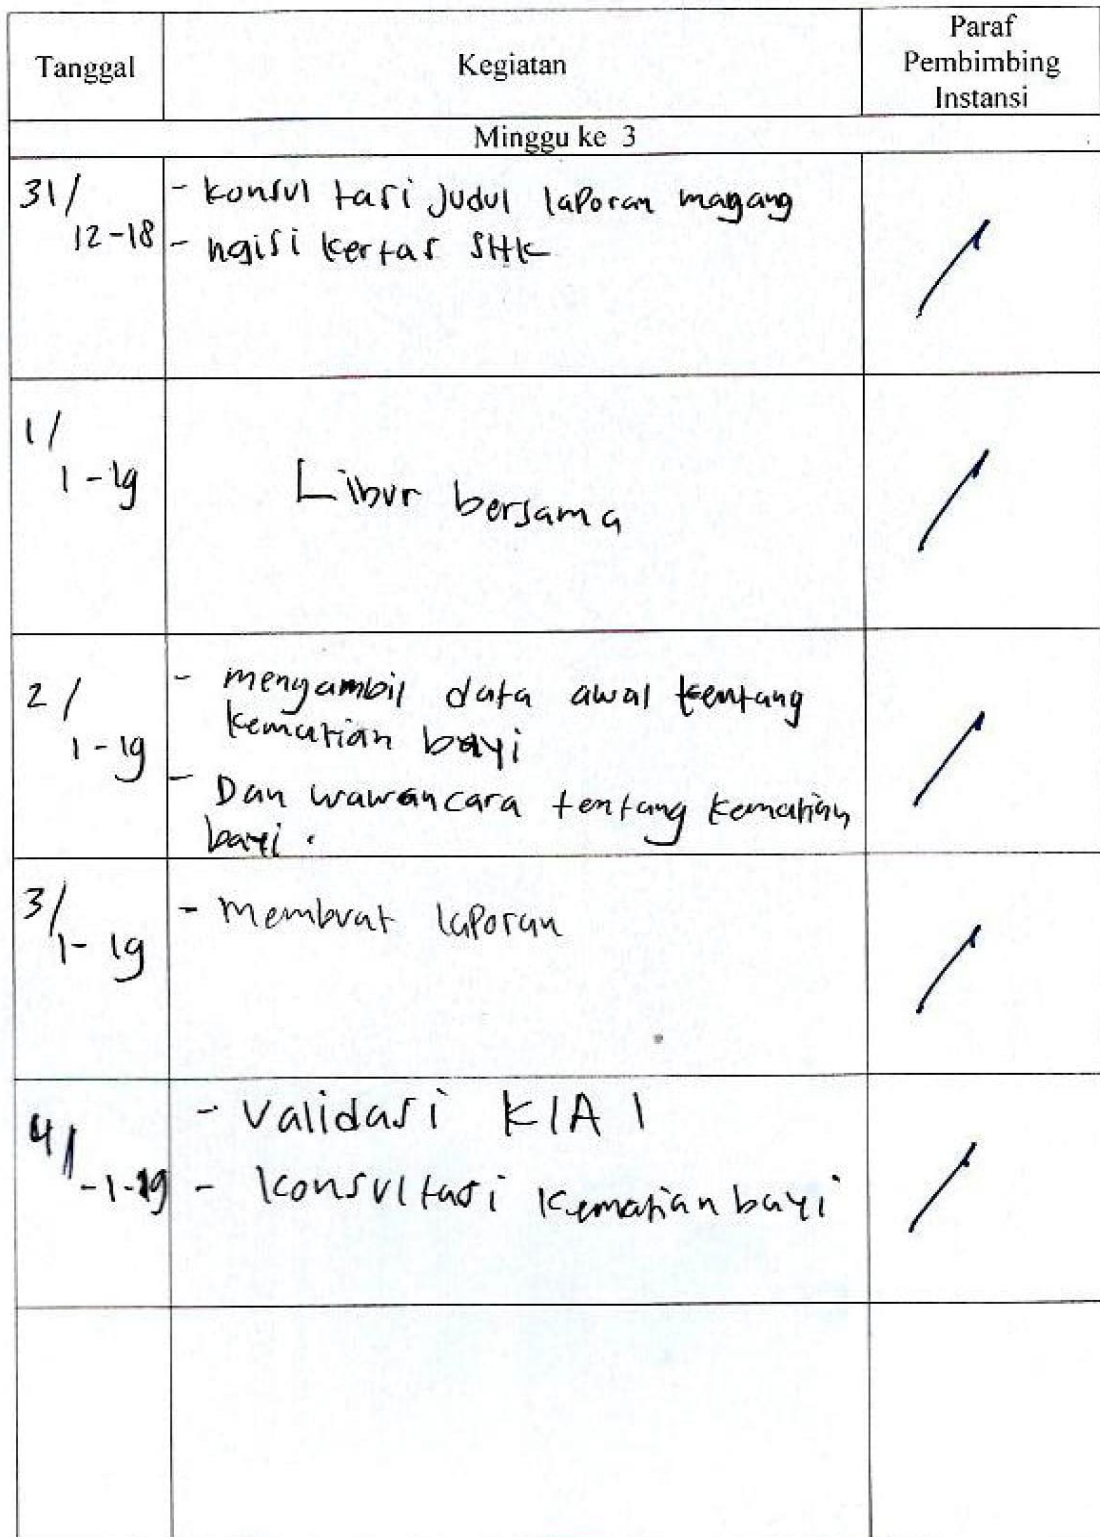 Tanggal
Kegiatan
Paraf
Pembimbing
Instansi
Minggu ke 3
31/
12-18
- konsul tasi judul laporan magang
- ngisi kertas SHK
1/
1-19
Libur bersama
2/
1-19
- mengambil data awal tentang
kematian bayi
- Dan wawancara tentang kematian
bayi.
3/
1-19
- Membuat laporan
4/
-1-19
- Validasi KIA 1
- Konsultasi kematian bayi